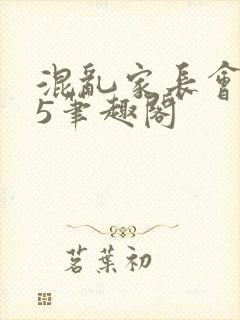 混亂家長會
5筆趣閣
茗葉初